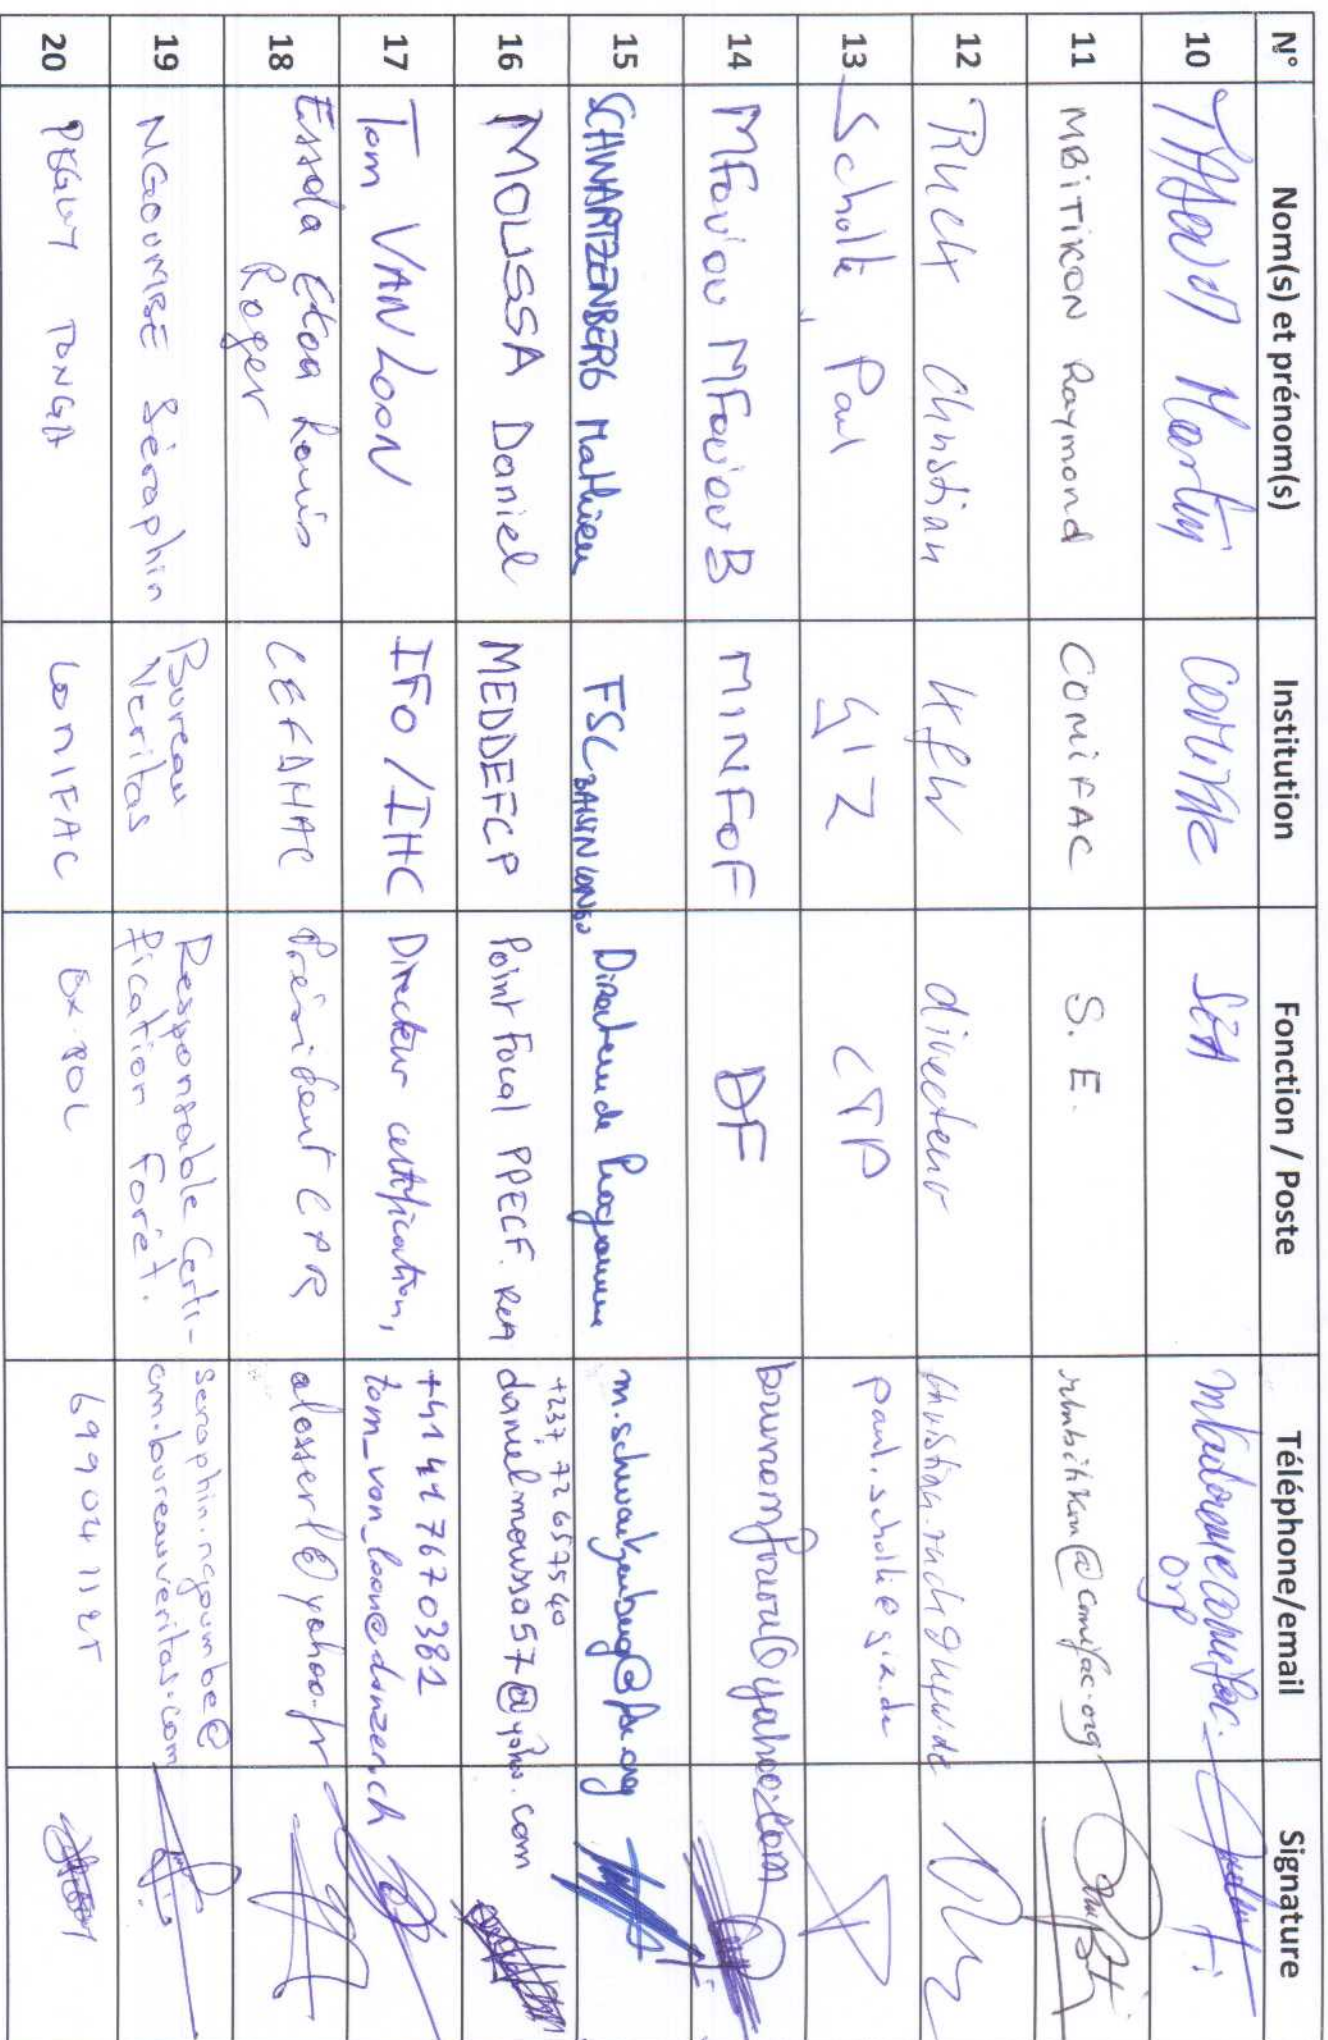 N° Nom(s) et prénom(s) Institution Fonction / Poste Téléphone/email Signature
10 Martin SEA
org
11 MBITIKON Raymond COMIFAC S. E. rmbitikon@comifac.org
12 Ruck Christian KfW directeur
13 Scholte Paul GIZ CTP paul.scholte@giz.de
14 MFou'ou MFou'ou B MINFOF DF brunomfouou@yahoo.com
15 SCHWARTZENBERG Mathieu FSC BASSIN CONGO Directeur de Programme m.schwartzenberg@fsc.org
16 MOUSSA Daniel MEDDEFCP Point Focal PPECF. RCA +237 72657540
danielmoussa57@yahoo.com
17 Tom VAN LOON IFO / IHC Directeur certification, +41 41 7670381
tom_van_loon@danzer.ch
18 Essola Etoa Louis
Roger CEFDHAC Président CPR alesserl@yahoo.fr
19 NGOUMBE Séraphin Bureau
Veritas Responsable Certi-
fication Forêt. seraphin.ngoumbe@
cm.bureauveritas.com
20 PEGUY TONGA COMIFAC EX-POL 699041125